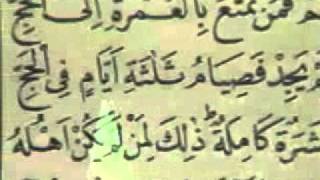 فَمَنْ تَمَتَّعَ بِالْعُمْرَةِ اِلَى الْحَجِّ
يَجِدْ فَصِيَامُ ثَلٰثَةِ اَيَّامٍ فِى الْحَجِّ
كَامِلَةٌ ؕ ذٰلِكَ لِمَنْ لَّمْ يَكُنْ اَهْلُهٗ